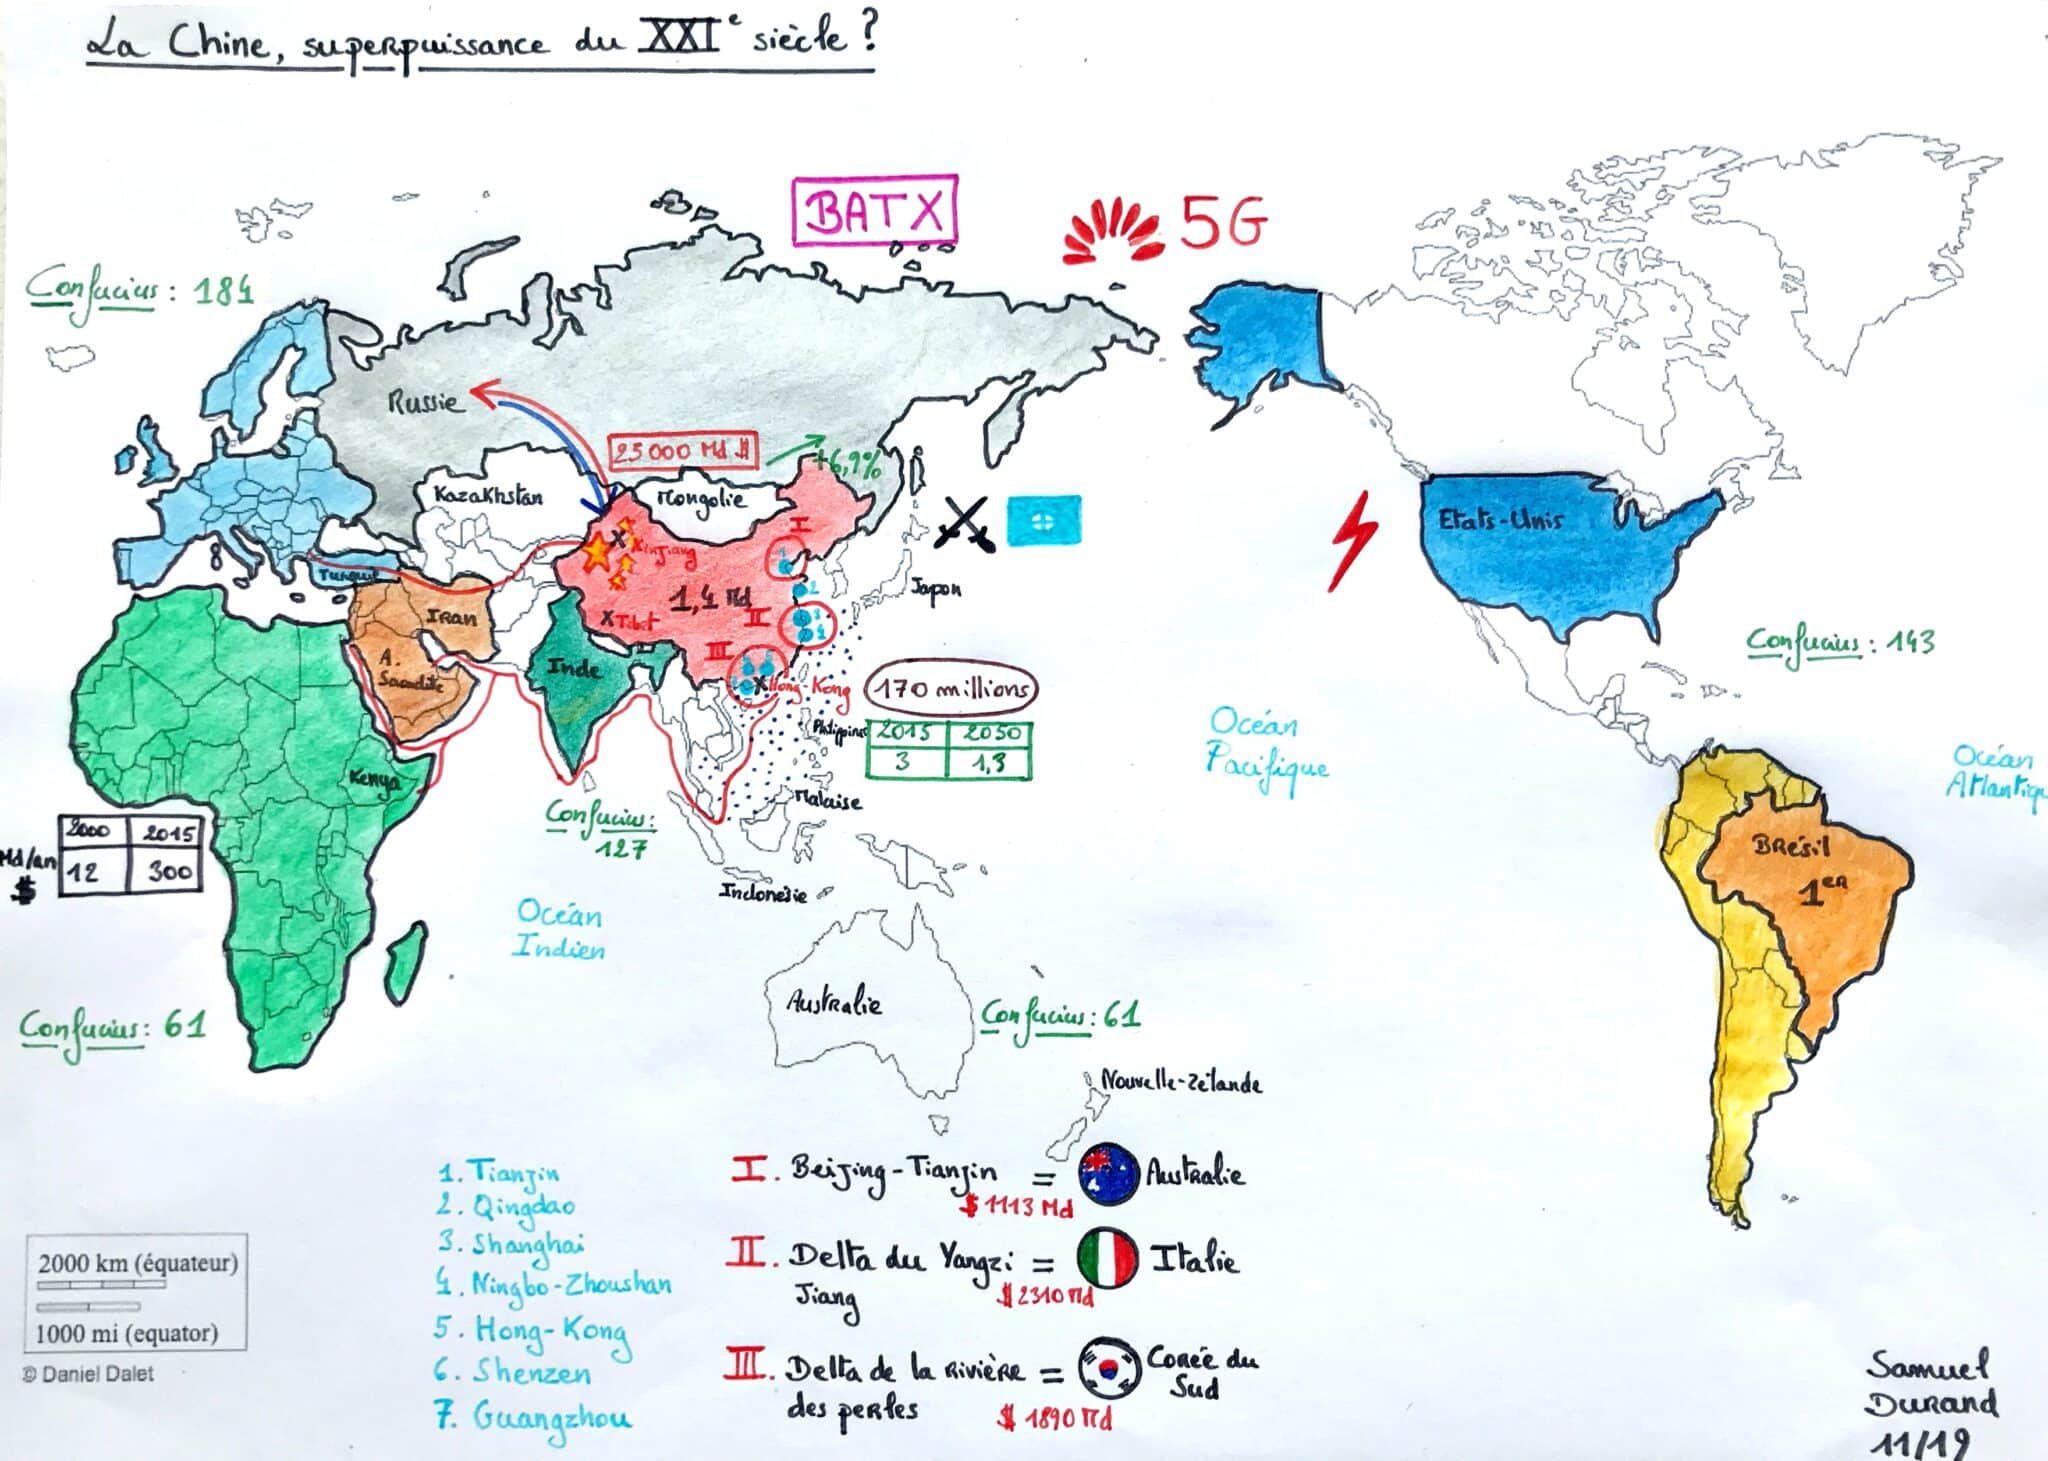 La Chine, superpuissance du XXIe siècle ?
BATX
5G
Confucius : 184
Russie
25000 Md $
+6,9%
Kazakhstan
Mongolie
Etats-Unis
Xinjiang
1
I
Turquie
1,4 Md
2
Japon
Iran
XTibet
II
3
4
Confucius : 143
A.
Saoudite
Inde
III
XHong-Kong
170 millions
Philippines
2015 2050
3 1,3
Océan
Pacifique
Océan
Atlantique
Kenya
Malaisie
Confucius:
127
2000 2015
Md/an 12 300
$
Indonésie
Brésil
1ER
Océan
Indien
Australie
Confucius: 61
Confucius: 61
Nouvelle-Zélande
1. Tianjin
2. Qingdao
3. Shanghai
4. Ningbo-Zhoushan
5. Hong-Kong
6. Shenzen
7. Guangzhou
I. Beijing-Tianjin = Australie
$ 1113 Md
II. Delta du Yangzi = Italie
Jiang $ 2310 Md
III. Delta de la rivière = Corée du
des perles Sud
$ 1890 Md
2000 km (équateur)
1000 mi (equator)
© Daniel Dalet
Samuel
Durand
11/19